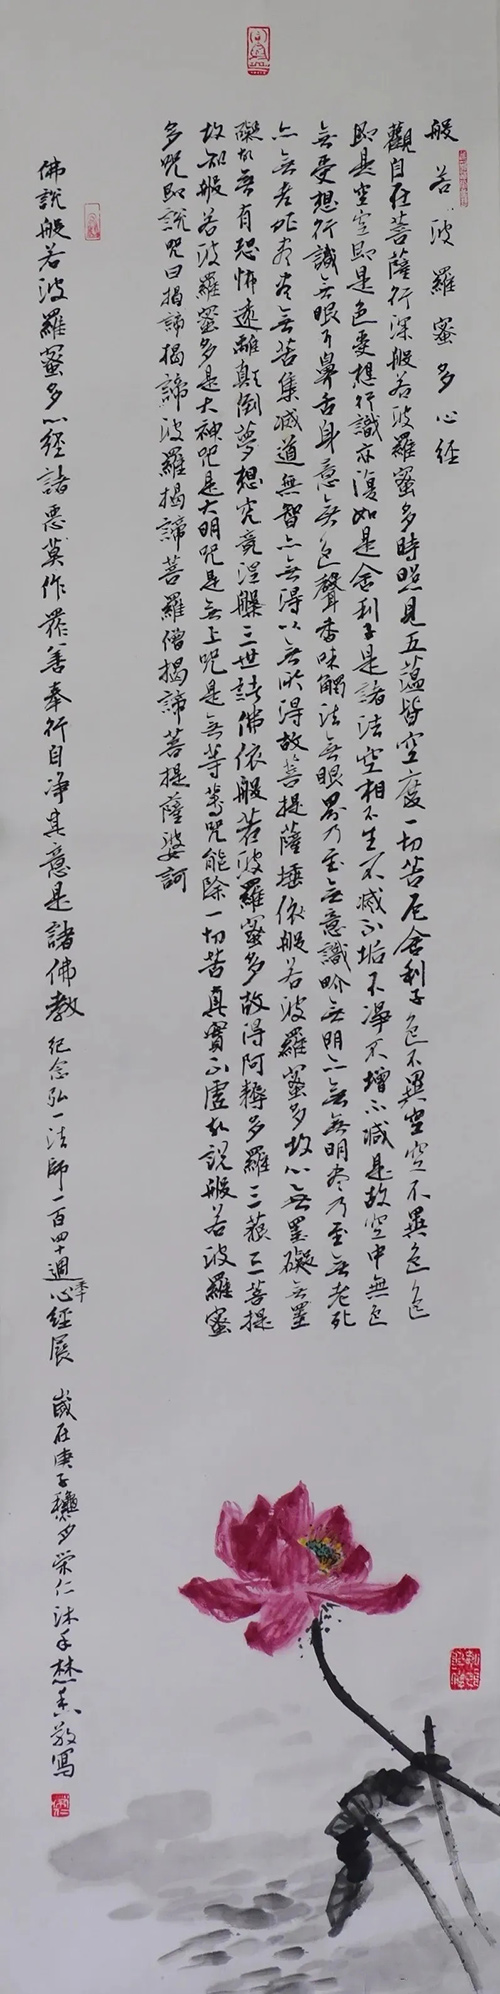 般若波羅蜜多心經
觀自在菩薩行深般若波羅蜜多時照見五蕴皆空度一切苦厄舍利子色不異空空不異色色
即是空空即是色受想行識亦復如是舍利子是諸法空相不生不滅不垢不淨不增不減是故空中無色
無受想行識無眼耳鼻舌身意無色聲香味觸法無眼界乃至無意識界無明亦無無明盡乃至無老死
亦無老死盡無苦集滅道無智亦無得以無所得故菩提薩埵依般若波羅蜜多故心無罣礙無罣
礙故無有恐怖遠離顛倒夢想究竟涅槃三世諸佛依般若波羅蜜多故得阿耨多羅三藐三菩提
故知般若波羅蜜多是大神咒是大明咒是無上咒是無等等咒能除一切苦真實不虛故說般若波羅蜜
多咒即說咒曰揭諦揭諦波羅揭諦菩羅僧揭諦菩提薩婆訶
佛說般若波羅蜜多心經諸惡莫作眾善奉行自净其意是諸佛教 紀念弘一法師一百四十週年心經展 歲在庚子 榮仁沐手焚香敬寫